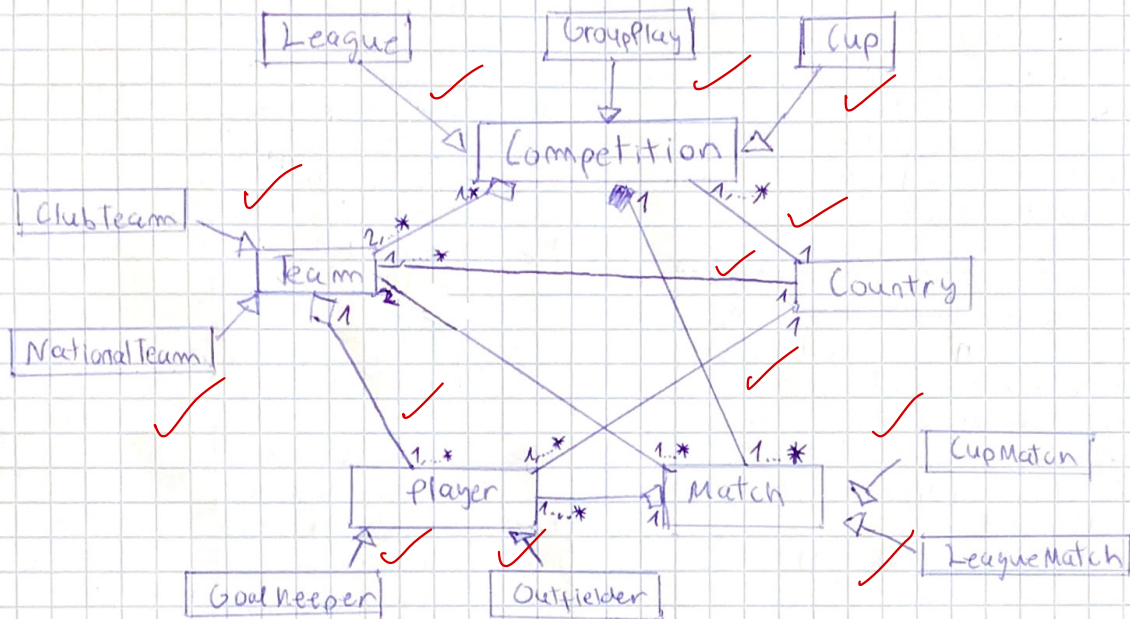 League
GroupPlay
Cup
Competition
1*
1
1,...*
ClubTeam
2,...*
1,...*
1
Team
Country
2
1
1
1
NationalTeam
1,...*
1,...*
1...*
1...*
CupMatch
Player
Match
1,...*
1
LeagueMatch
GoalKeeper
Outfielder